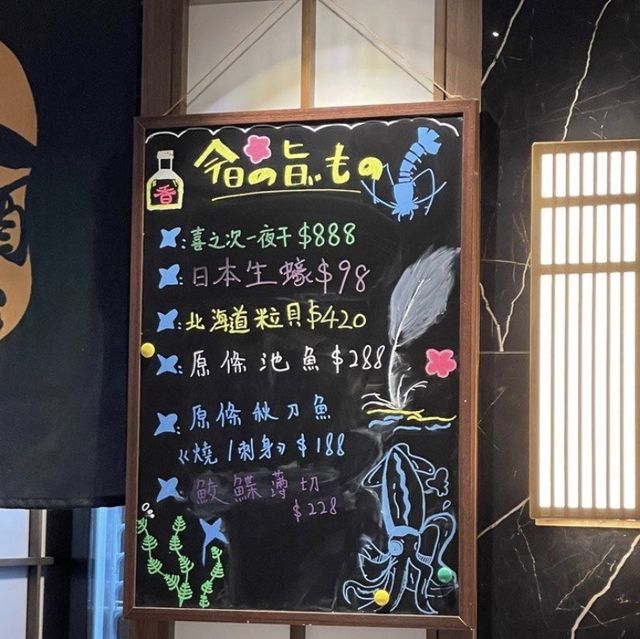 酒
香
今日の旨いもの
:喜之次一夜干 $888
:日本生蠔 $98
:北海道粒貝 $420
:原條池魚 $288
:原條秋刀魚
《燒/刺身》 $188
:鮫鰈薄切
$228